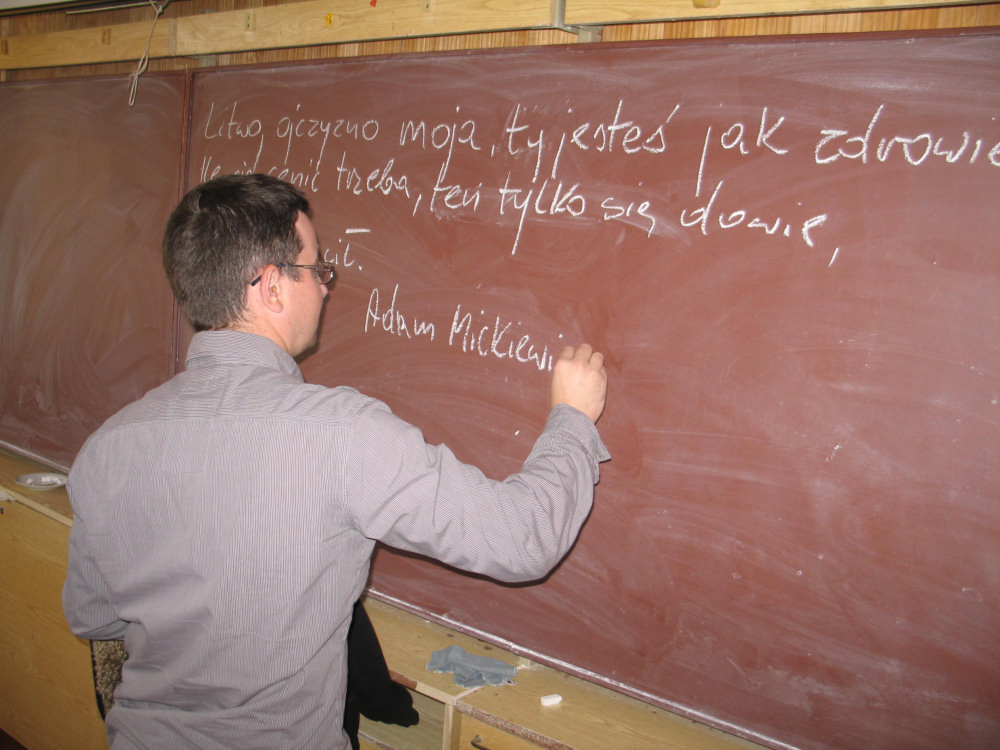 Litwo, ojczyzno moja, ty jesteś jak zdrowie
Ile cię cenić trzeba, ten tylko się dowie,
cił.
Adam Mickiewi